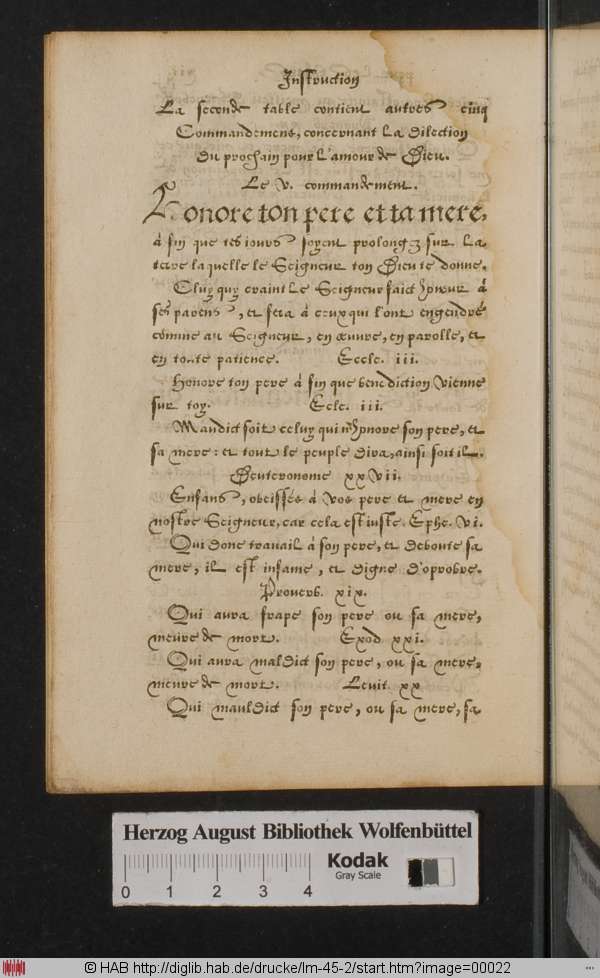 Instruction
La seconde table contient autres cinq
Commandemens, concernant la dilection
du prochain pour l'amour de Dieu.
Le v. commandement.
Honore ton pere et ta mere,
à fin que tes iours soyent prolongez sur la
terre laquelle le Seigneur ton Dieu te donne.
Cluy quy craint le Seigneur faict honneur à
ses parens, et sera à ceux qui l'ont engendré
comme au Seigneur, en œuvre, en parolle, et
en toute patience. Eccle. iii.
Honore ton pere à fin que benediction vienne
sur toy. Ecle. iii.
Maudict soit celuy qui n'honore son pere, et
sa mere: et tout le peuple dira, ainsi soit il.
Deuteronome xxvii.
Enfans, obeissés à vos pere et mere en
nostre Seigneur, car cela est iuste. Ephe. vi.
Qui donc travail à son pere, et deboute sa
mere, il est infame, et digne d'oprobre.
Proverb. xix.
Qui aura frape son pere ou sa mere,
meure de mort. Exod xxi.
Qui aura maldict son pere, ou sa mere,
meure de mort. Levit. xx
Qui mauldict son pere, ou sa mere, sa
Herzog August Bibliothek Wolfenbüttel
0 1 2 3 4
Kodak
Gray Scale
© HAB http://diglib.hab.de/drucke/lm-45-2/start.htm?image=00022